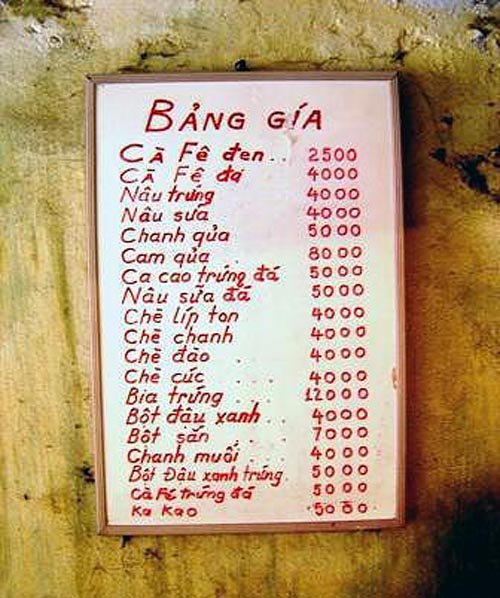 BẢNG GÍA
CÀ FÊ đen.. 2500
CÀ FÊ đá 4000
Nâu trứng 4000
Nâu sưá 4000
Chanh qủa 5000
Cam qủa . 8000
Ca cao trứng đá 5000
Nâu sữa đá 5000
Chè líp ton 4000
Chè chanh 4000
Chè đào . 4000
Chè cúc . ... 4000
Bia trứng . ... 12000
Bôt đâụ xanh.. 4000
Bôt sắn . . . 7000
Chanh muối . .. 4000
Bôt Đâụ xanh trứng. 5000
Cà Fê trứng đá 5000
Ka Kao 5000